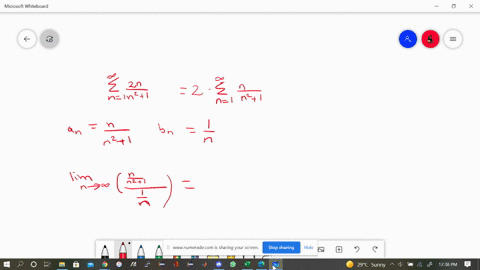 Microsoft Whiteboard
∞ ∑ n=1 2n/n²+1 = 2 · ∞ ∑ n=1 n/n²+1
aₙ = n/n²+1 bₙ = 1/n
lim n→∞ (n/n²+1 / 1/n) =
www.numerade.com is sharing your screen. Stop sharing Hide
29°C Sunny